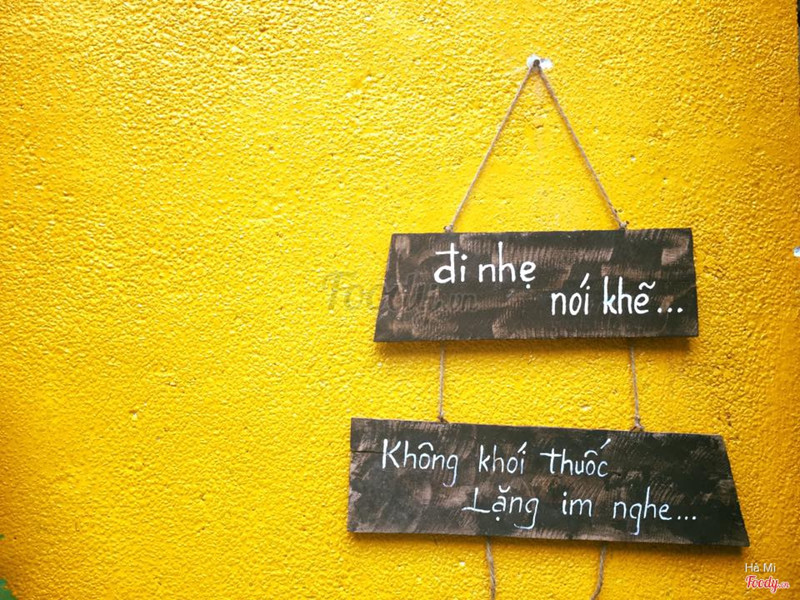 đi nhẹ
nói khẽ...
Không khói thuốc
Lặng im nghe...
Foody.vn
Hà Mi
Foody.vn